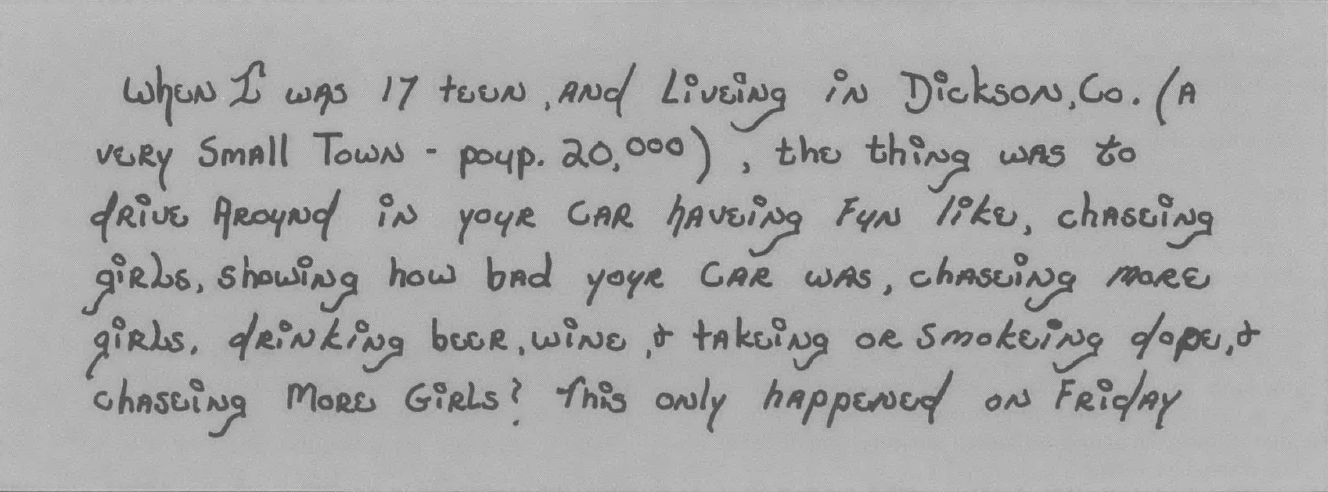 When I was 17 teen, and Liveing in Dickson, Co. (A
very Small Town - poup. 20,000), the thing was to
drive Around in your CAR haveing Fun like, chaseing
girls, showing how bad your CAR was, chaseing more
girls, drinking beer, wine, & takeing or smokeing dope, &
chaseing More Girls? This only happened on Friday